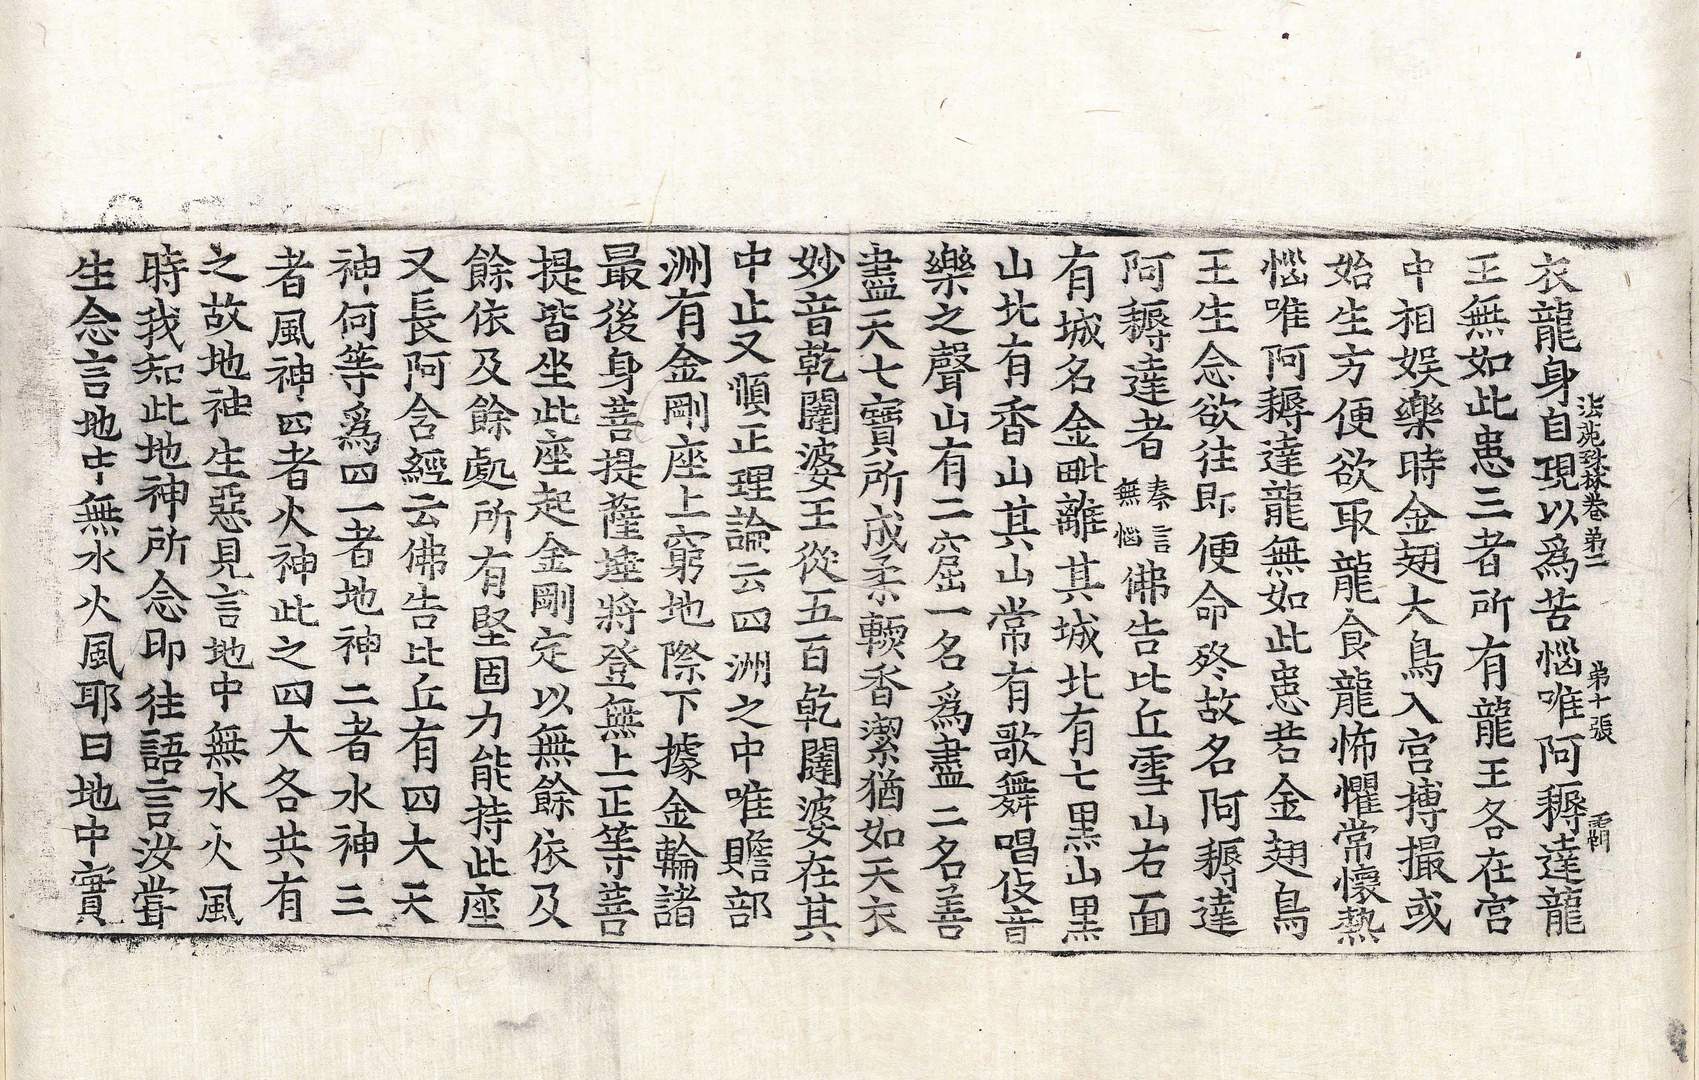 法苑珠林卷第二 第十張 覇
衣龍身自現以爲苦惱唯阿耨達龍
王無如此患三者所有龍王各在宮
中相娛樂時金翅大鳥入宮搏撮或
始生方便欲取龍食龍怖懼常懷熱
惱唯阿耨達龍無如此患若金翅鳥
王生念欲往即便命終故名阿耨達
阿耨達者秦言無惱佛告比丘雪山右面
有城名金毗離其城北有七黑山黑
山北有香山其山常有歌舞唱伎音
樂之聲山有二窟一名爲晝二名善
晝天七寶所成柔輭香潔猶如天衣
妙音乾闥婆王從五百乾闥婆在其
中止又順正理論云四洲之中唯贍部
洲有金剛座上窮地際下據金輪諸
最後身菩提薩埵將登無上正等菩
提皆坐此座起金剛定以無餘依及
餘依及餘處所有堅固力能持此座
又長阿含經云佛告比丘有四大天
神何等爲四一者地神二者水神三
者風神四者火神此之四大各共有
之故地神生惡見言地中無水火風
時我知此地神所念即往語言汝當
生念言地中無水火風耶曰地中實